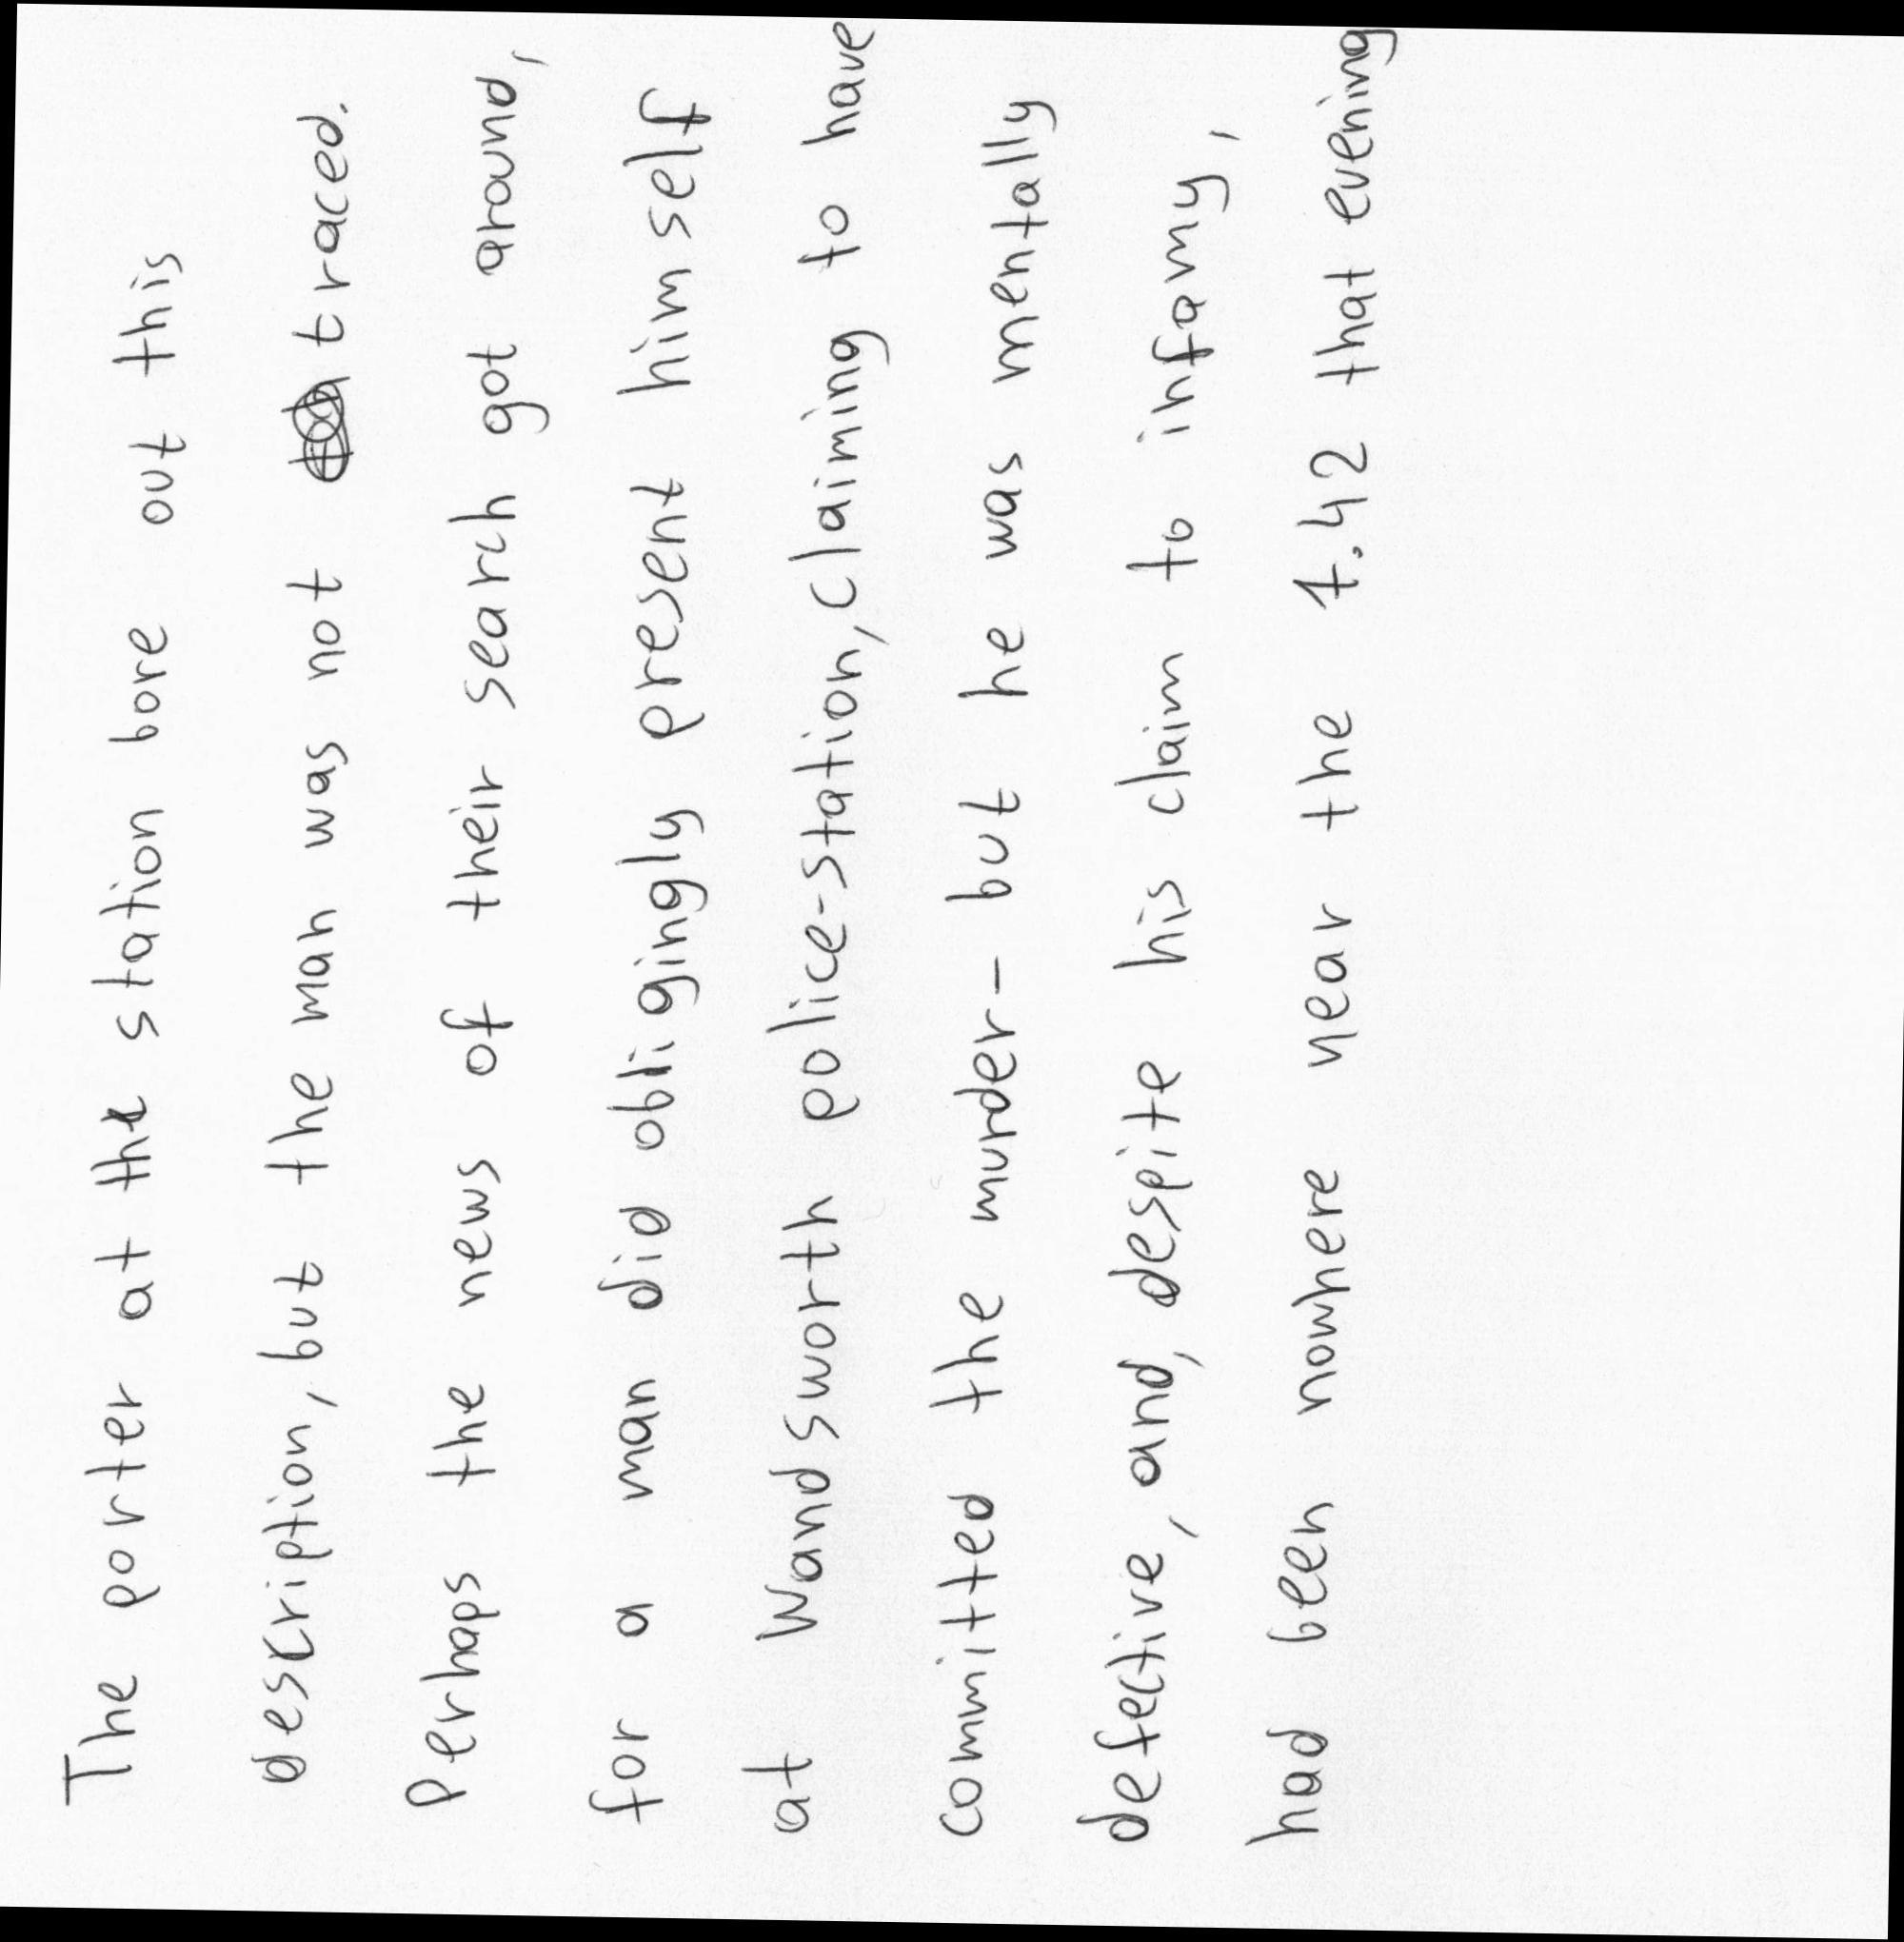 The porter at the station bore out this
description, but the man was not traced.
Perhaps the news of their search got around,
for a man did obligingly present himself
at Wandsworth police-station, claiming to have
committed the murder- but he was mentally
defective, and, despite his claim to infamy,
had been nowhere near the 7.42 that evening